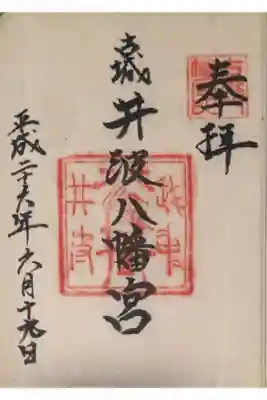 奉拝
古城
井波八幡宮
平成二十六年六月十九日